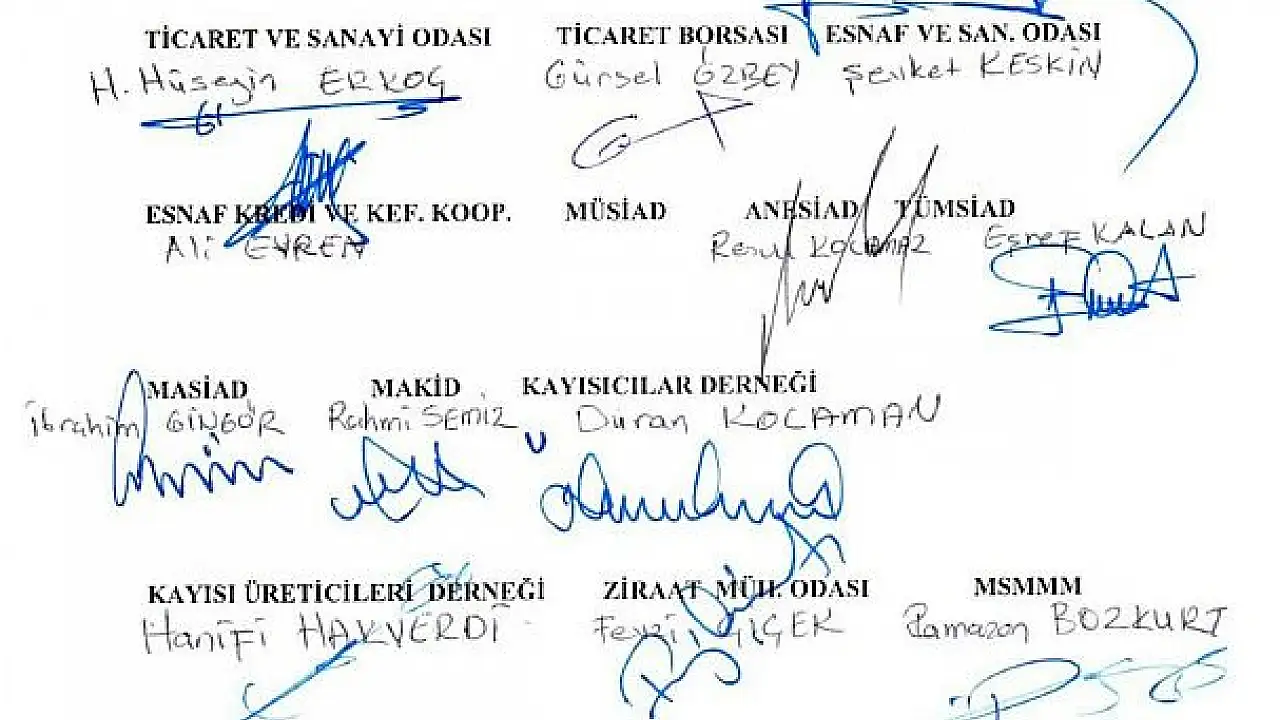 TİCARET VE SANAYİ ODASI TİCARET BORSASI ESNAF VE SAN. ODASI
H. Hüseyin ERKOÇ Gürsel ÖZBEY Şevket KESKİN
ESNAF KREDİ VE KEF. KOOP. MÜSİAD ANESİAD TÜMSİAD
Ali EVREN Resul KOCAMAZ Eşref KALAN
MASİAD MAKİD KAYISICILAR DERNEĞİ
İbrahim GİNGÖR Rahmi SEMİZ Duran KOCAMAN
KAYISI ÜRETİCİLERİ DERNEĞİ ZİRAAT MÜH. ODASI MSMMM
Hanifi HAKVERDİ Fevzi ÇİÇEK Ramazan BOZKURT